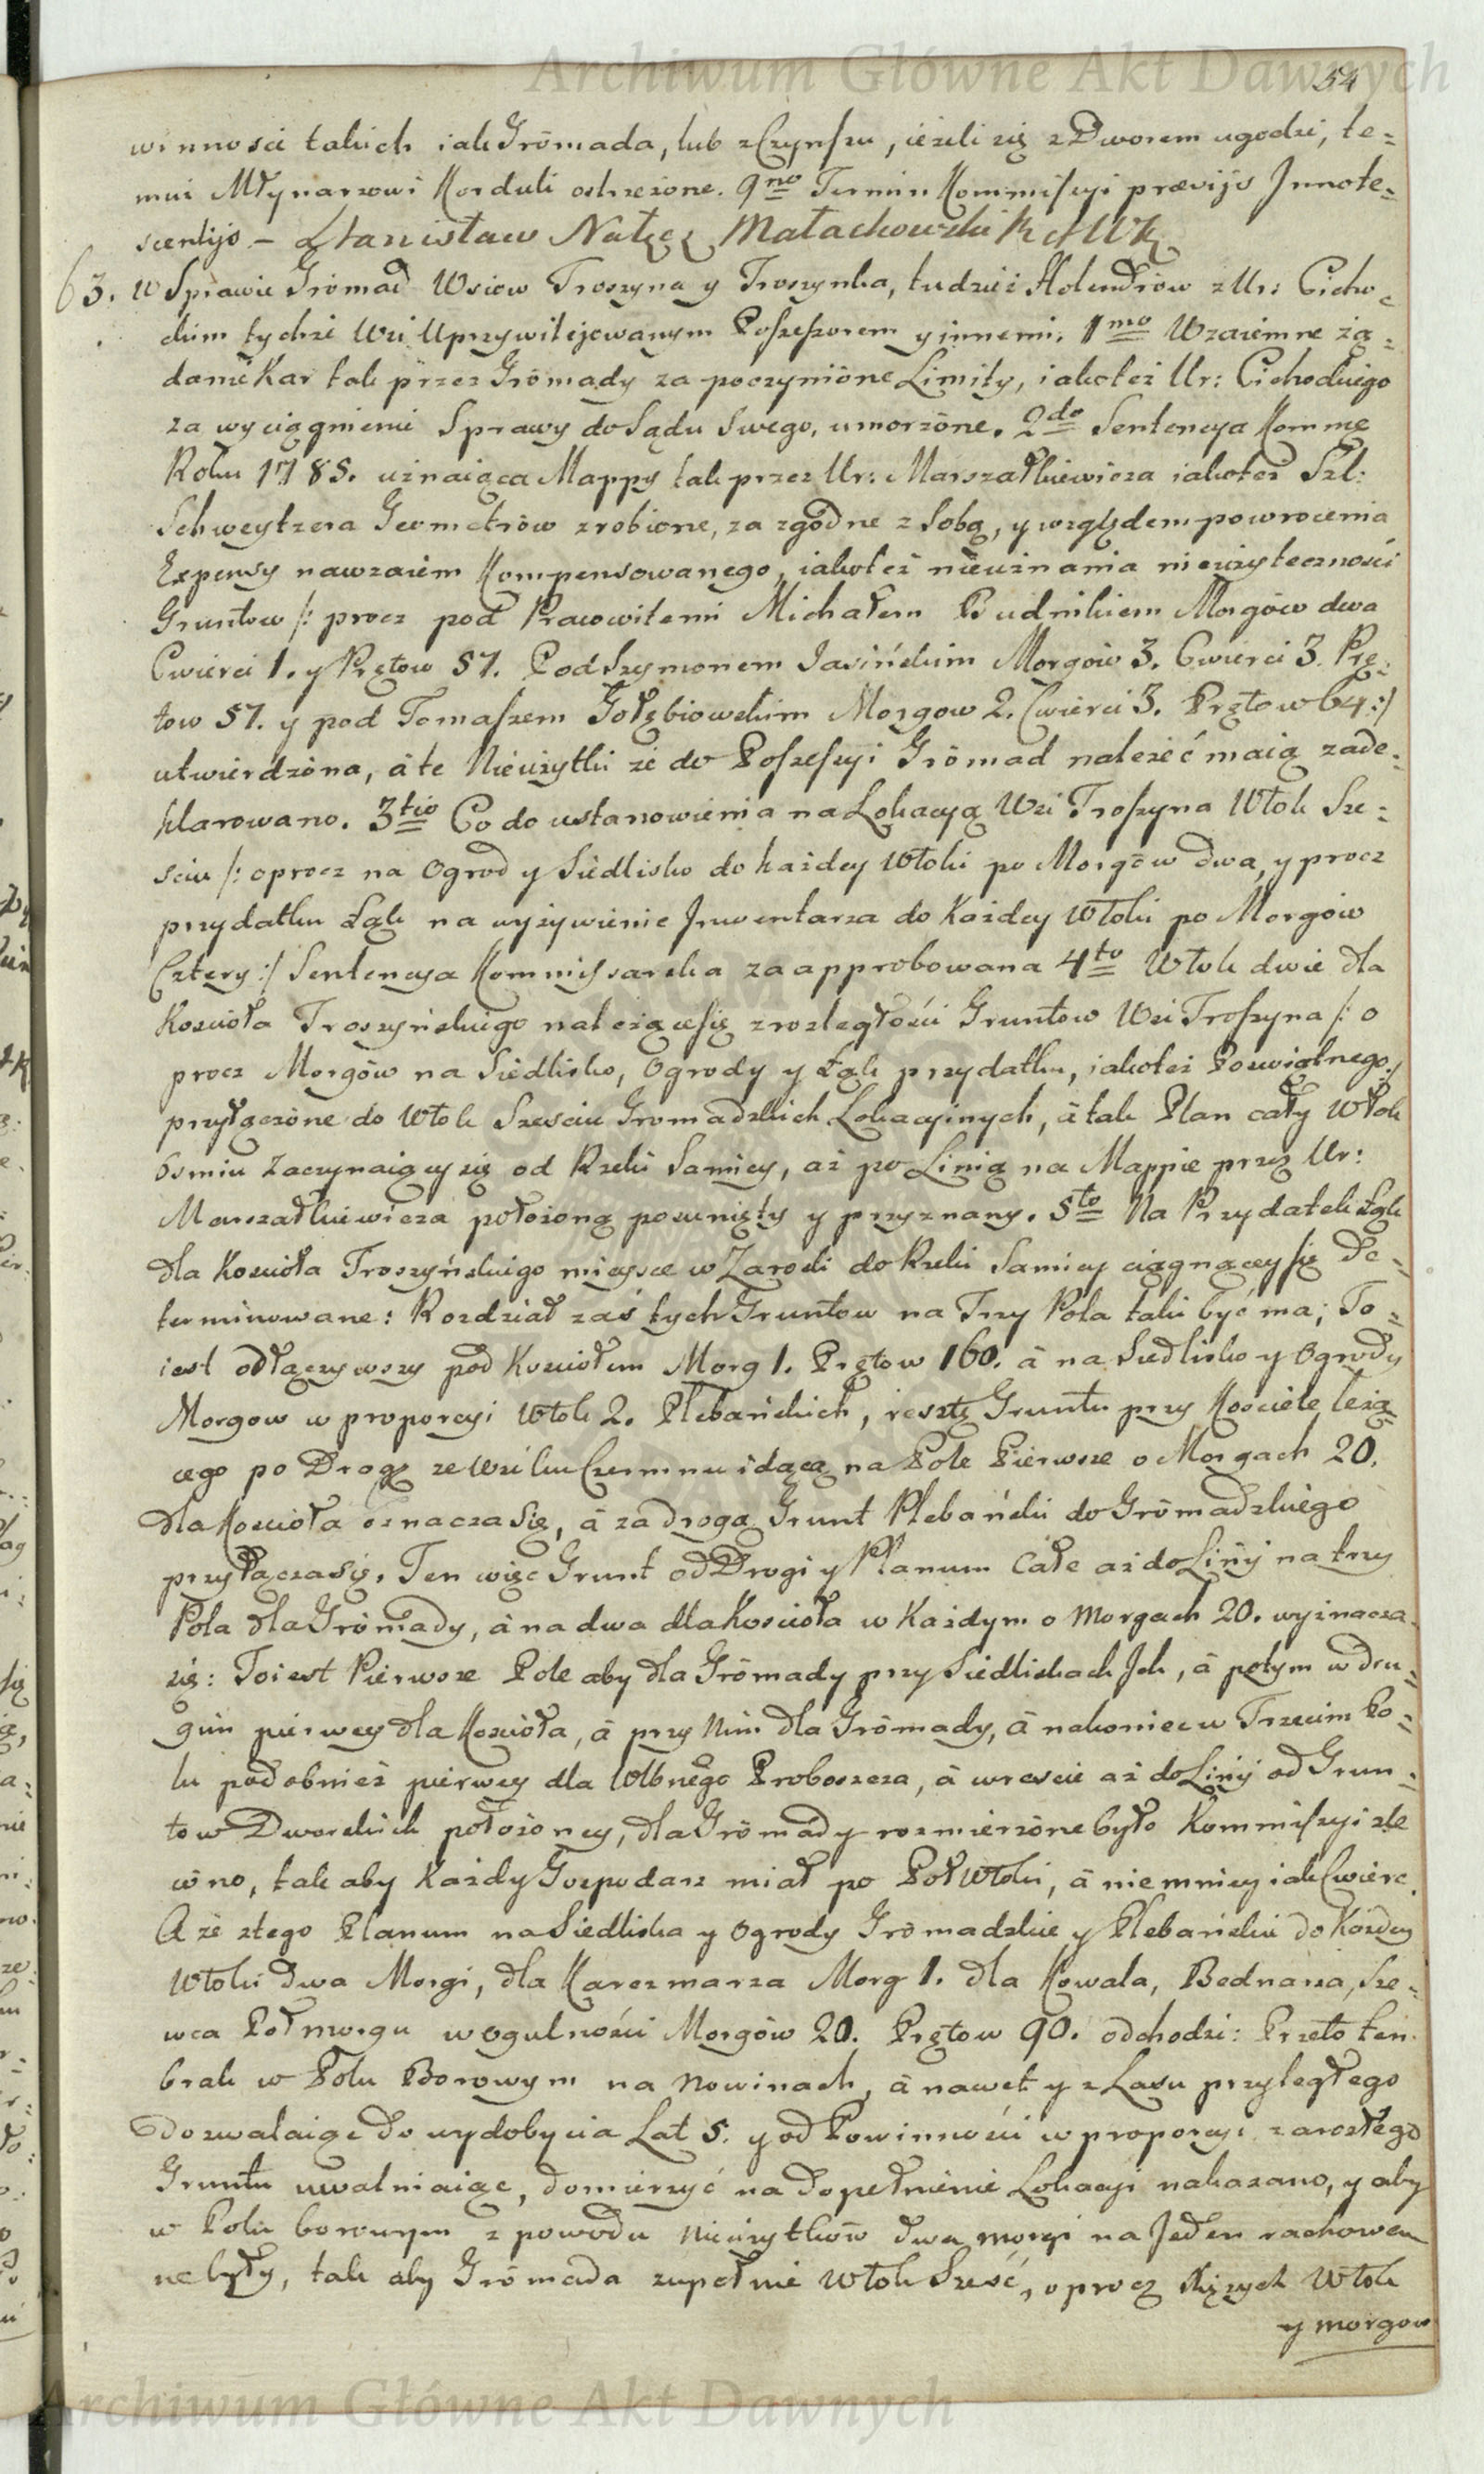 Archiwum Główne Akt Dawnych
54
winności takich iak Grōmada, lub z Czynszu, ieżeli się z Dworem ugodzi, te=
muż Młynarzowi Korduli ostrzeżone. 9no Termin Kommissyi prævijs Innote=
scentijs – Stanisław Nałęcz Małachowski R et WK
63. W Sprawie Gromad Wsiow Troszyna y Troszynka, tudzież Holendrow z Ur: Cicho=
ckim tychże Wsi Uprzywilejowanym Possessorem y innemi. 1mo Wzaiemne żą=
danie Kar tak przez Grōmady za poczynione Limity, iakoteż Ur: Cichockiego
za wyciągnienie Sprawy do Sądu swego, umorzōne. 2do Sentencya Kommę
Roku 1785. uznaiąca Mappy tak przez Ur: Marszałkiewicza iakoteż Szl:
Schweytzera Geometrōw zrobione, za zgōdne z sobą, y względem powrocenia
Expensy nawzaiem Kompensowanego, iakoteż nieuznania nieużyteczności
Gruntow /: procz pod Pracowitemi Michałem Budnikiem Morgōw dwa
Cwierci 1. y Prętow 57. Pod Szymonem Jasińskim Morgōw 3. Cwierci 3. Prę=
tow 57. y pod Tomaszem Gołębiowskim Morgow 2. Cwierci 3. Prętow 64:/
utwierdzōna, á te Nieużytki że do Possessyi Grōmad należeć maią zade=
klarowano. 3tio Co do ustanowienia na Lokacyą Wsi Troszyna Włok Sze=
sciu /: oprocz na Ogrod y Siedlisko do każdey Włoki po Morgōw dwa, y procz
przydatku Łąk na wyżywienie Inwentarza do Każdey Włoki po Morgōw
Cztery:/ Sentencya Kommissarska zaapprobowana 4to Włok dwie dla
Kościoła Troszyńskiego należące się z rozległości Gruntow Wsi Troszyna /: o
procz Morgōw na Siedlisko, Ogrody y Łąk przydatku, iakoteż Poswiątnego:/
przyłączōne do Włok Szesciu Gromadzkich Lokacyinych, á tak Plan cały Włok
ósmiu Zaczynaiący się od Rzeki Samicy, aż po Linią na Mappie przez Ur:
Marszałkiewicza położoną posunięty y przyznany. 5to Na Przydatek Łąk
dla Kościoła Troszyńskiego mieysce w Zarośli do Rzeki Samicy ciągnącey się De=
terminowane: Rozdział zaś tych Gruntow na Trzy Pola taki być ma; To=
iest odłączywszy pod Kosciołem Morg 1. Prętow 160. á na Siedlisko y Ogrody
Morgow w proporcyi Włok 2. Plebańskich, resztę Gruntu przy Kosciele leżą
cego po Drogę ze Wsi ku Czermnu idącą na Pole Pierwsze o Morgach 20.
dla Kościoła oznacza się, á za drogą Grunt Plebański do Grōmadzkiego
przyłącza się. Ten więc Grunt od Drogi y Planum Całe aż do Linij na trzy
Pola dla Grōmady, á na dwa dla Kościoła w Każdym o Morgach 20. wyznacza
się: To iest Pierwsze Pole aby dla Grōmady przy Siedliskach Ich, á potym w dru=
gim pierwey dla Kościoła, á przy Nim dla Grōmady, á nakoniec w Trzecim Po=
lu podobnież pierwey dla Wlbnego Proboszcza, á wrescie aż do Linij od Grun=
tow Dworskich położoney, dla Grōmady rozmierzōne było Kommissyi zle
cōno, tak aby Każdy Gospodarz miał po Poł Włoki, á nie mniey iak Cwierć.
A że z tego Planum na Siedliska y Ogrody Grōmadzkie y Plebańskie do Każdey
Włoki dwa Morgi, dla Karczmarza Morg 1. dla Kowala, Bednarza, Sze=
wca Poł morgu w ogulności Morgōw 20. Prętow 90. odchodzi: Przeto ten
brak w Polu Borowym na Nowinach, á nawet y z Lasu przyległego
dozwalaiąc do wydobycia Lat 5. y od Powinności w proporcyi zarosłego
Gruntu uwalniaiąc, domierzyć na dopełnienie Lokacyi nakazano, y aby
w Polu borowym z powodu Nieużytkōw dwa morgi na Jeden rachowa
ne były, tak aby Grōmada zupełnie Włok Sześć, oprocz Xiężych Włok
y morgow
Archiwum Główne Akt Dawnych